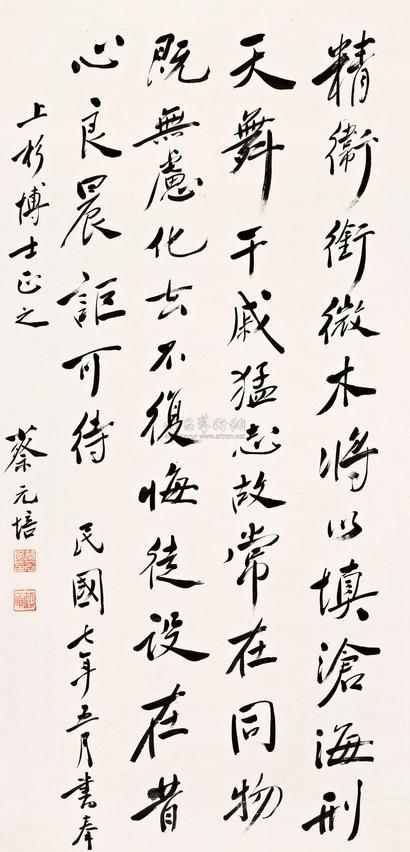 精衛銜微木將以填滄海刑
天舞干戚猛志故常在同物
既無慮化去不復悔徒設在昔
心良晨詎可待 民國七年五月書奉
上杉博士正之
蔡元培